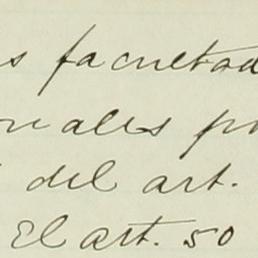 s facultad
uales po
del art.
El art. 50